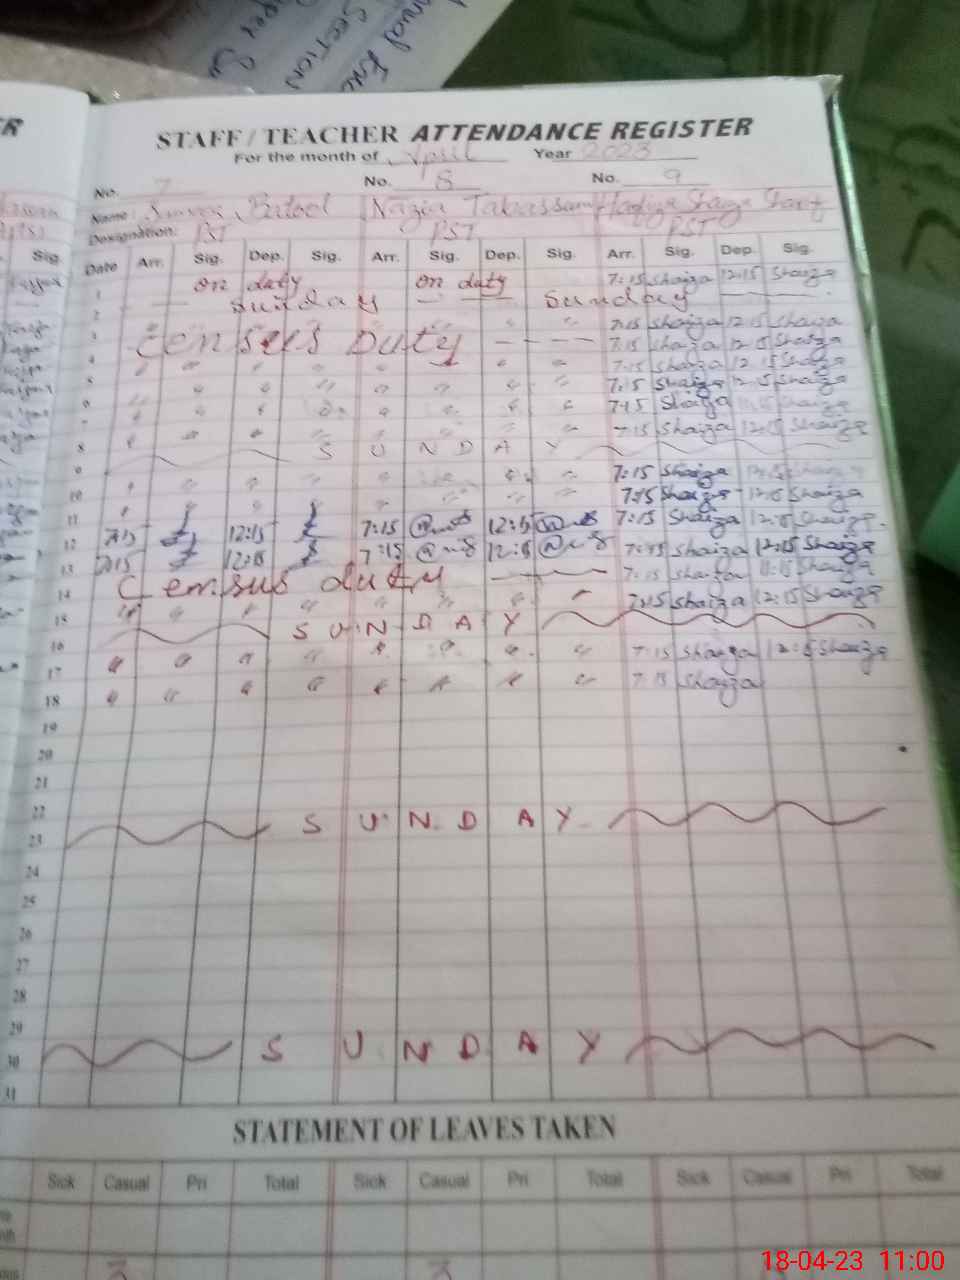 STAFF / TEACHER ATTENDANCE REGISTER
For the month of April Year 2023
No. 7 No. 8 No. 9
Name: Batool Nazia Tabassum Hadiqa Shaiza Sharif
Designation: PST PST PST
Sig. Date Arr. Sig. Dep. Sig. Arr. Sig. Dep. Sig. Arr. Sig. Dep. Sig.
1 on duty on duty 7:15 Shaiza 12:15 Shaiza
2 Sunday — — Sunday
3 " " 7:15 Shaiza 12:15 Shaiza
4 Census Duty - - - - 7:15 Shaiza 12:15 Shaiza
5 " " " " " " " " 7:15 Shaiza 12:15 Shaiza
6 " " " " " " " 7:15 Shaiza 12:15 Shaiza
7 " " " " " " " " 7:15 Shaiza 12:15 Shaiza
8 " " " " " " " " 7:15 Shaiza 12:15 Shaiza
9 SUNDAY
10 " " " " " " " 7:15 Shaiza 12:15 Shaiza
11 " " " " " " 7:15 Shaiza 12:15 Shaiza
12 7:15 12:15 7:15 12:15 7:15 Shaiza 12:15 Shaiza
13 7:15 12:15 7:15 12:15 7:15 Shaiza 12:15 Shaiza
14 Census duty 7:15 Shaiza 12:15 Shaiza
15 " " " " " " " 7:15 Shaiza 12:15 Shaiza
16 SUNDAY
17 " " " " " " " " 7:15 Shaiza 12:15 Shaiza
18 " " " " " " " " 7:15 Shaiza
19
20
21
22
23 SUNDAY
24
25
26
27
28
29
30 SUNDAY
31
STATEMENT OF LEAVES TAKEN
Sick Casual Pri Total Sick Casual Pri Total Sick Casual Pri Total
3 3
18-04-23 11:00